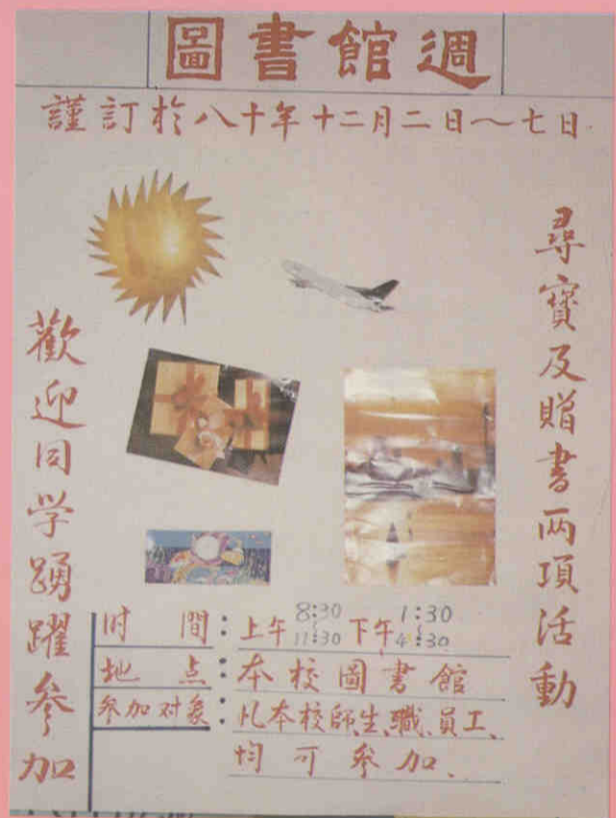 圖書館週
謹訂於八十年十二月二日～七日
尋寶及贈書两項活動
歡迎同学踴躍参加
时間：上午8:30 11:30 下午1:30 4:30
地点：本校圖書館
参加对象：凡本校師、生、職、員工、
均可参加、